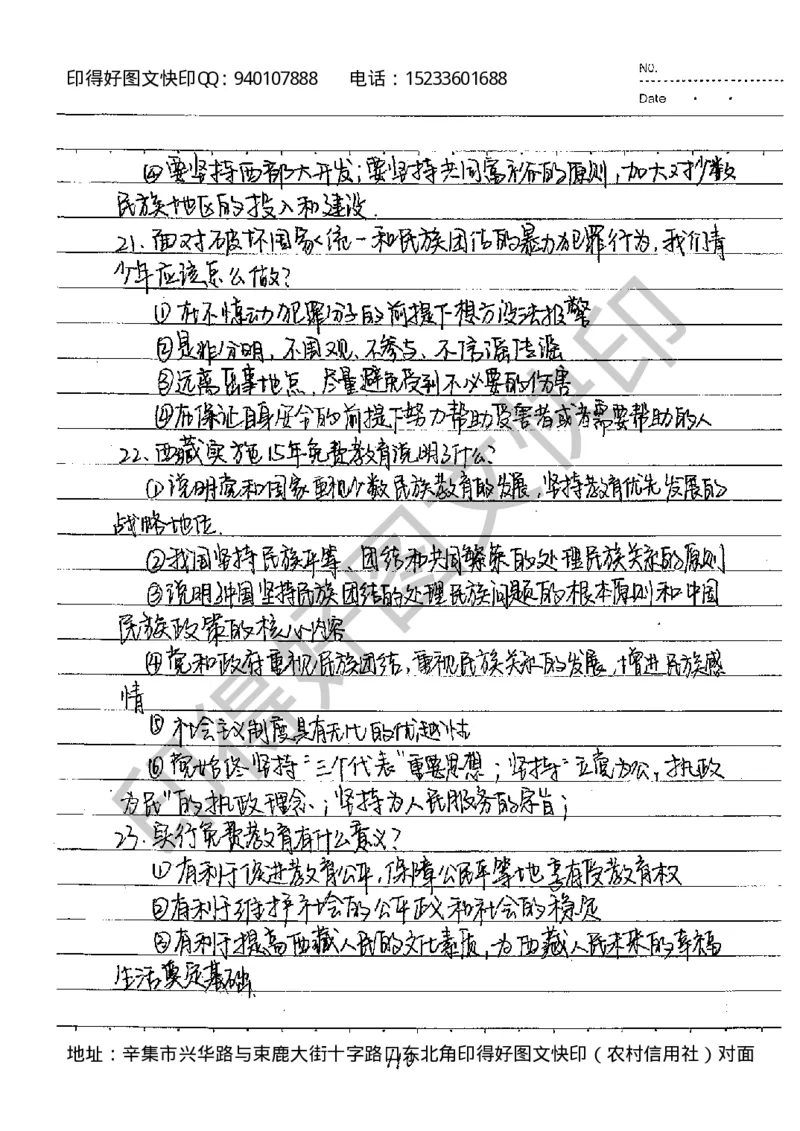 印得好图文快印QQ：940107888 电话：15233601688
No.
Date
④要坚持西部大开发；要坚持共同富裕的原则，加大对少数
民族地区的投入和建设．
21、面对破坏国家统一和民族团结的暴力犯罪行为，我们青
少年应该怎么做？
①在不惊动犯罪分子的前提下想方设法报警
②是非分明，不围观、不参与、不信谣传谣
③远离出事地点，尽量避免受到不必要的伤害
④在保证自身安全的前提下努力帮助受害者或者需要帮助的人
22、西藏实施15年免费教育说明了什么？
①说明党和国家重视少数民族教育的发展，坚持教育优先发展的
战略地位．
②我国坚持民族平等、团结和共同繁荣的处理民族关系的原则
③说明了中国坚持民族团结的处理民族问题的根本原则和中国
民族政策的核心内容
④党和政府重视民族团结，重视民族关系的发展，增进民族感
情
⑤社会主义制度具有无比的优越性
⑥党始终坚持“三个代表”重要思想；坚持“立党为公，执政
为民”的执政理念；坚持为人民服务的宗旨；
23、实行免费教育有什么意义？
①有利于促进教育公平，保障公民平等地享有受教育权
②有利于维护社会的公平正义和社会的稳定
③有利于提高西藏人民的文化素质，为西藏人民未来的幸福
生活奠定基础．
地址：辛集市兴华路与束鹿大街十字路口东北角印得好图文快印（农村信用社）对面
印得好图文快印